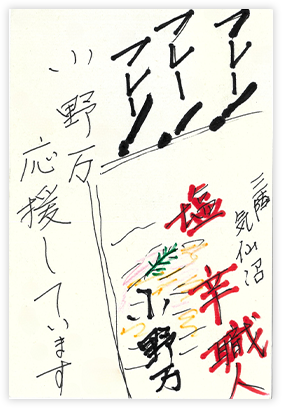 フレー!
フレー!
フレー!
三陸
気仙沼
塩辛職人
小野万
小野万
応援しています